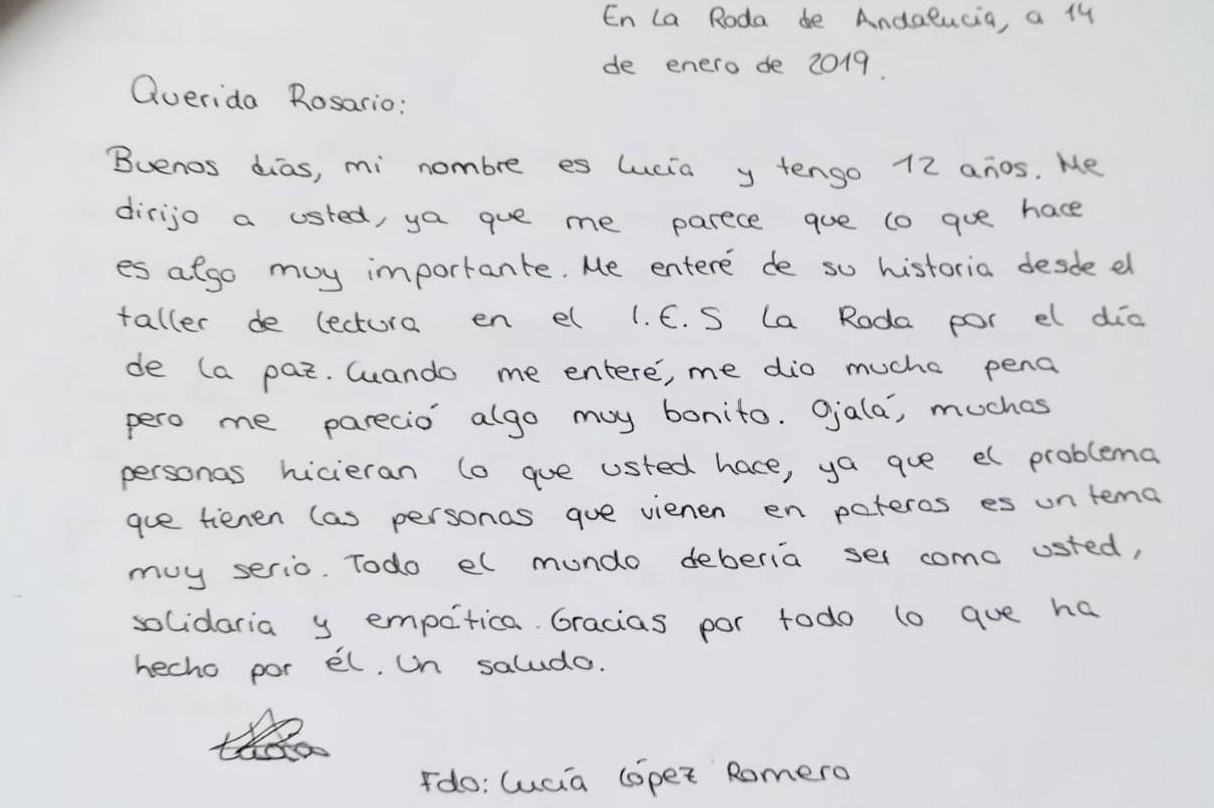 En La Roda de Andalucía, a 14
de enero de 2019.
Querida Rosario:
Buenos días, mi nombre es Lucía y tengo 12 años. Me
dirijo a usted, ya que me parece que lo que hace
es algo muy importante. Me enteré de su historia desde el
taller de lectura en el I.E.S La Roda por el día
de la paz. Cuando me enteré, me dio mucha pena
pero me pareció algo muy bonito. Ojalá, muchas
personas hicieran lo que usted hace, ya que el problema
que tienen las personas que vienen en pateras es un tema
muy serio. Todo el mundo debería ser como usted,
solidaria y empática. Gracias por todo lo que ha
hecho por él. Un saludo.
Fdo: Lucía López Romero